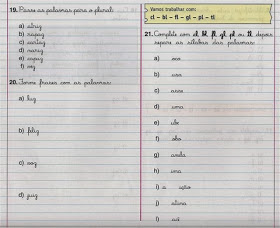 19. Passe as palavras para o plural:
a) atriz
b) rapaz
c) cartaz
d) nariz
e) capuz
f) vez
20. Forme frases com as palavras:
a) luz
b) feliz
c) voz
d) juiz
Vamos trabalhar com:
cl - bl - fl - gl - pl - tl
21. Complete com cl, bl, fl, gl, pl ou tl, depois
separe as sílabas das palavras:
a) oco
b) ara
c) asse
d) uma
e) ube
f) obo
g) anta
h) ima
i) a ação
j) atina
l) aú